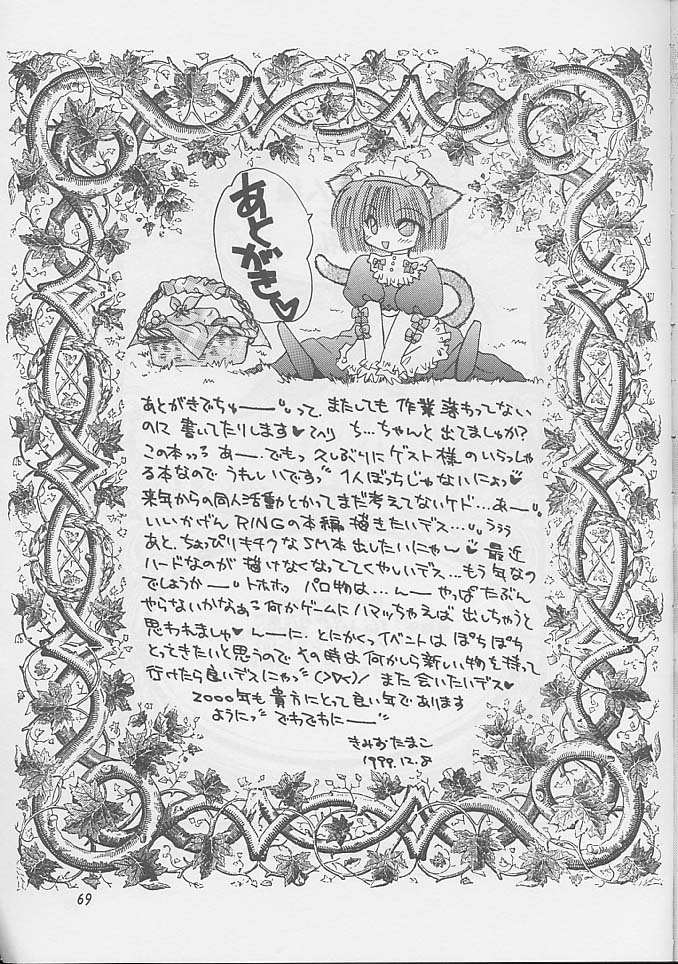 あとがき♥
あとがきでちゅー"って、またしても作業終わってない
のに書いてたりします♥てへっ ち…ちゃんと出てましゅか?
この本っっる あー、でもっ 久しぶりにゲスト様のいらっしゃ
る本なのでうれしいですっ" 1人ぼっちじゃないにょっ♥
来年からの同人活動とかってまだ考えてないケド…あー"
いいかげんRINGの本編描きたいデス…"うぅぅ
あと、ちょっぴりキチクなSM本出したいにゃ〜♥ 最近
ハードなのが描けなくなっててくやしいデス…もう気なの
でしょうかー"トホホっ パロ物は…んー やっぱたぶん
やらないかなぁある何かゲームにハマッちゃえば出しちゃうと
思われましゅ♥ んーに、とにかくっイベントはぽちぽち
とってきたいと思うので その時は何かしら新しい物を持って
行けたら良いデスにゃっ"(>∇<)/ また会いたいデス♥
2000年も貴方にとって良い年であります
ように" でわでわにー"
きみおたまこ
1999.12.8
69